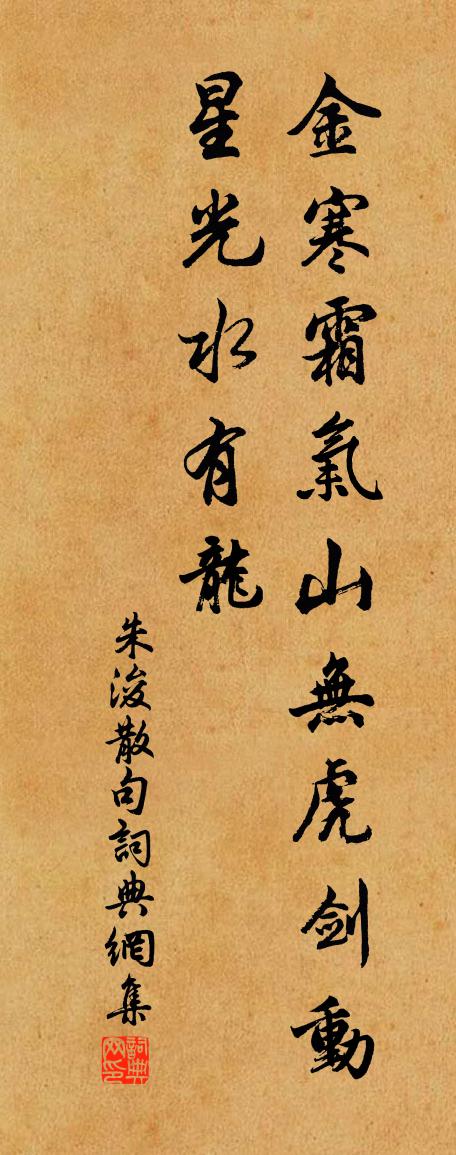 金寒霜氣山無虎劍動
星光水有龍
朱浚散句詞典網集
詞典网印